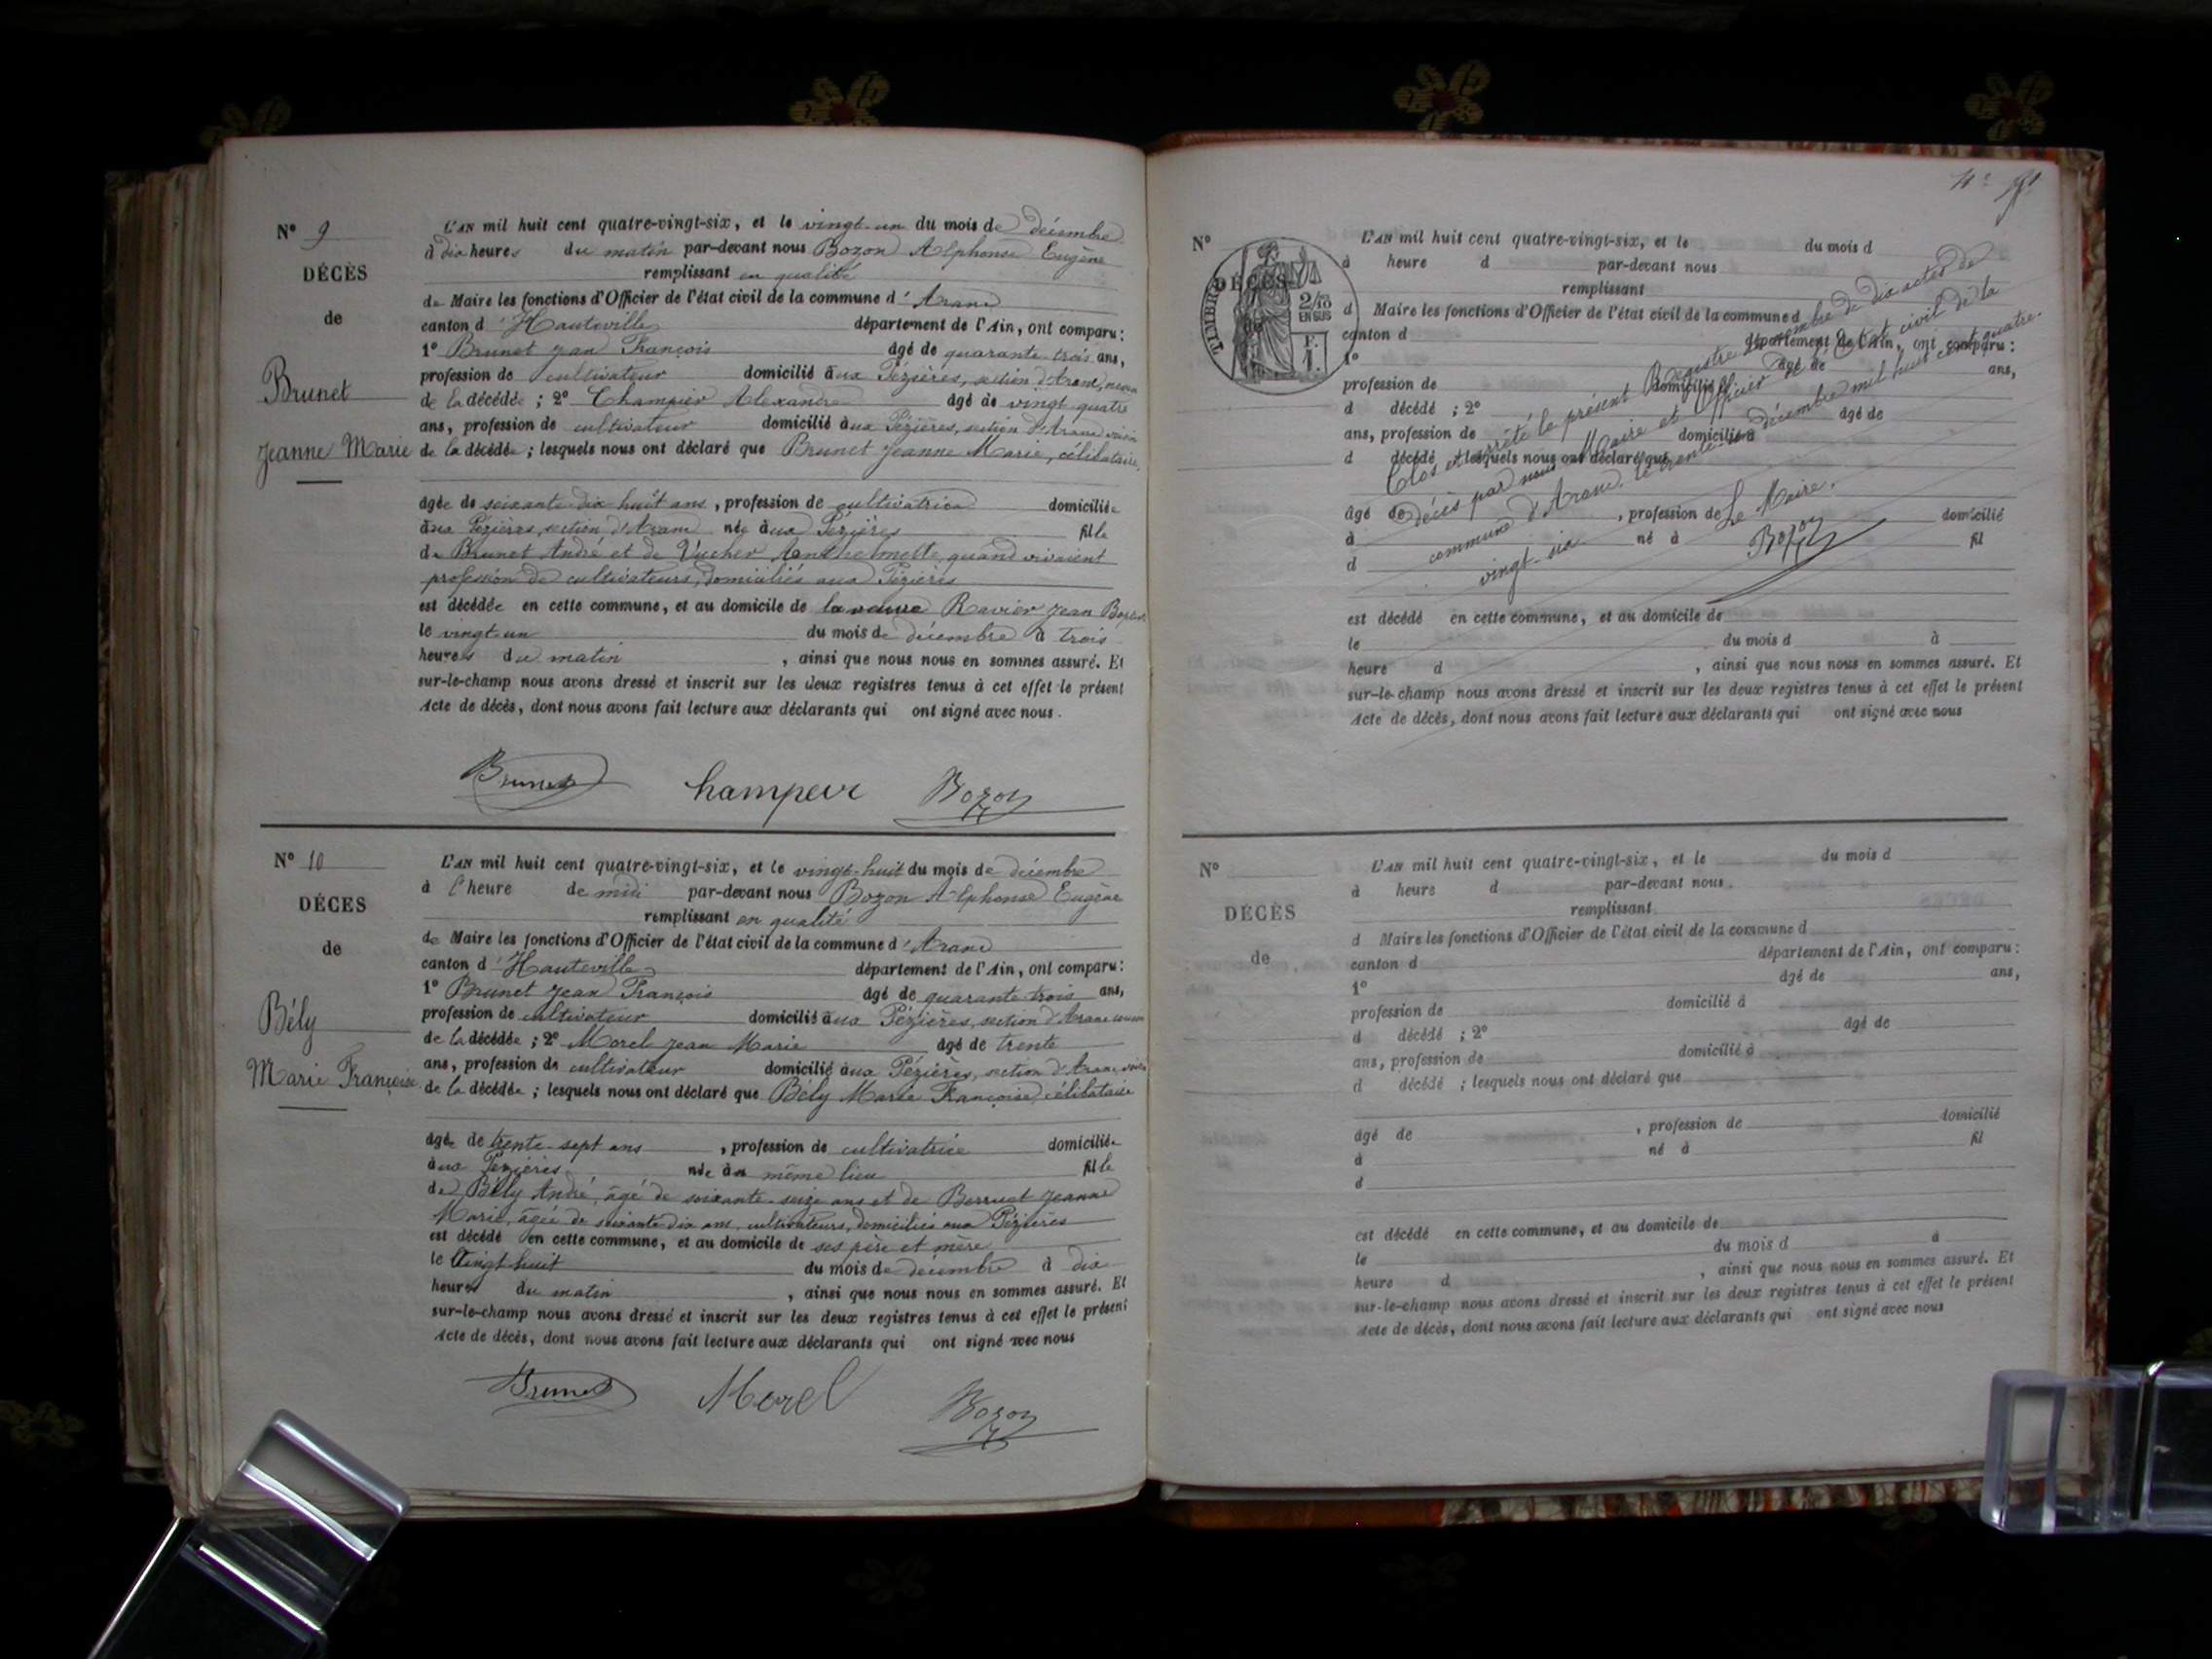 N° 9
DÉCÈS
de
Brunet
Jeanne Marie
L'AN mil huit cent quatre-vingt-six, et le vingt-un du mois de décembre
à dix heures du matin par-devant nous Bozon Alphonse Eugène
remplissant en qualité
de Maire les fonctions d'Officier de l'état civil de la commune d'Aranc
canton d'Hauteville département de l'Ain, ont comparu:
1° Brunet Jean François âgé de quarante-trois ans,
profession de cultivateur domicilié aux Pézières, section d'Aranc, neveu
de la décédée; 2° Champier Alexandre âgé de vingt-quatre
ans, profession de cultivateur domicilié aux Pézières, section d'Aranc voisin
de la décédée; lesquels nous ont déclaré que Brunet Jeanne Marie, célibataire,
âgée de soixante-dix-huit ans, profession de cultivatrice domiciliée
aux Pézières, section d'Aranc née aux Pézières fille
de Brunet André et de Vucher Anthelmette, quand vivaient
profession de cultivateurs, domiciliés aux Pézières
est décédée en cette commune, et au domicile de la veuve Ravier Jean
le vingt-un du mois de décembre à trois
heures du matin, ainsi que nous nous en sommes assuré. Et
sur-le-champ nous avons dressé et inscrit sur les deux registres tenus à cet effet le présent
Acte de décès, dont nous avons fait lecture aux déclarants qui ont signé avec nous.
Brunet hampeir Bozon
N° 10
DÉCÈS
de
Bély
Marie Françoise
L'AN mil huit cent quatre-vingt-six, et le vingt-huit du mois de décembre
à l'heure de midi par-devant nous Bozon Alphonse Eugène
remplissant en qualité
de Maire les fonctions d'Officier de l'état civil de la commune d'Aranc
canton d'Hauteville département de l'Ain, ont comparu:
1° Brunet Jean François âgé de quarante-trois ans,
profession de cultivateur domicilié aux Pézières, section d'Aranc cousin
de la décédée; 2° Morel Jean Marie âgé de trente
ans, profession de cultivateur domicilié aux Pézières, section d'Aranc voisin
de la décédée; lesquels nous ont déclaré que Bély Marie Françoise, célibataire
âgée de trente-sept ans, profession de cultivatrice domiciliée
aux Pézières née au même lieu fille
de Bély André, âgé de soixante-seize ans et de Berruet Jeanne
Marie, âgée de soixante-dix ans, cultivateurs, domiciliés aux Pézières
est décédé en cette commune, et au domicile de ses père et mère
le vingt-huit du mois de décembre à dix
heures du matin, ainsi que nous nous en sommes assuré. Et
sur-le-champ nous avons dressé et inscrit sur les deux registres tenus à cet effet le présent
Acte de décès, dont nous avons fait lecture aux déclarants qui ont signé avec nous
Brunet Morel Bozon
N°
DÉCÈS
TIMBRE
2/10
EN SUS
F.
1.
L'AN mil huit cent quatre-vingt-six, et le du mois d
à heure d par-devant nous
remplissant
d Maire les fonctions d'Officier de l'état civil de la commune d
canton d département de l'Ain, ont comparu:
1° âgé de ans,
profession de domicilié à
d décédé ; 2° âgé de
ans, profession de domicilié à
d décédé ; lesquels nous ont déclaré que
âgé de , profession de domicilié
à né à fil
d
Clos et arrêté le présent Registre au nombre de dix actes de
décès par nous Maire et Officier de l'Etat civil de la
commune d'Aranc, le trente-un décembre mil huit cent quatre-
vingt-six
Le Maire,
Bozon
est décédé en cette commune, et au domicile de
le du mois d à
heure d , ainsi que nous nous en sommes assuré. Et
sur-le-champ nous avons dressé et inscrit sur les deux registres tenus à cet effet le présent
Acte de décès, dont nous avons fait lecture aux déclarants qui ont signé avec nous
N°
DÉCÈS
de
L'AN mil huit cent quatre-vingt-six, et le du mois d
à heure d par-devant nous
remplissant
d Maire les fonctions d'Officier de l'état civil de la commune d
canton d département de l'Ain, ont comparu:
1° âgé de ans,
profession de domicilié à
d décédé ; 2° âgé de
ans, profession de domicilié à
d décédé ; lesquels nous ont déclaré que
âgé de , profession de domicilié
à né à fil
d
est décédé en cette commune, et au domicile de
le du mois d à
heure d , ainsi que nous nous en sommes assuré. Et
sur-le-champ nous avons dressé et inscrit sur les deux registres tenus à cet effet le présent
Acte de décès, dont nous avons fait lecture aux déclarants qui ont signé avec nous